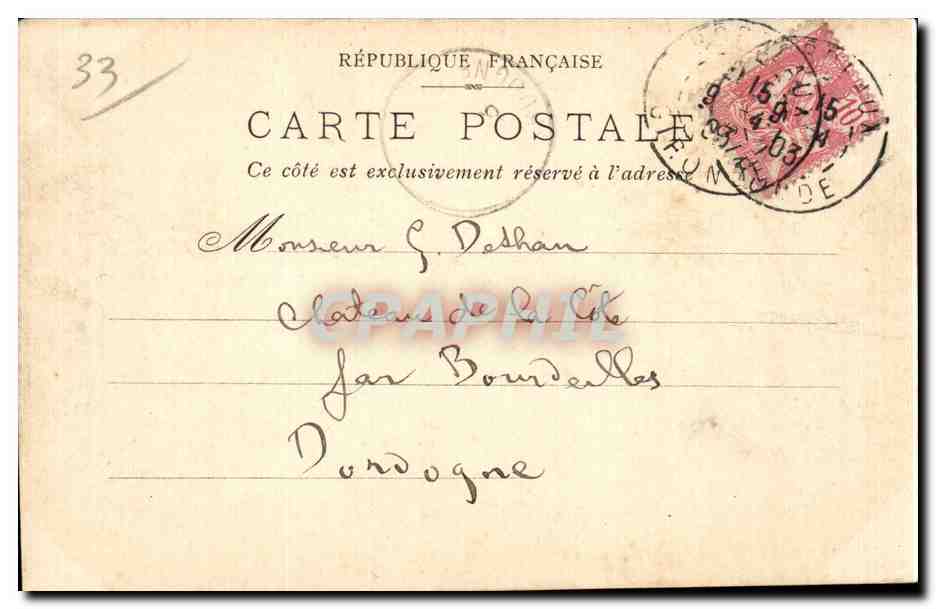 33
RÉPUBLIQUE FRANÇAISE
CARTE POSTALE
Ce côté est exclusivement réservé à l'adresse
Monsieur G. Dethan
château de la Côte
par Bourdeilles
Dordogne
CPAPHIL
10
15
03
GIRONDE